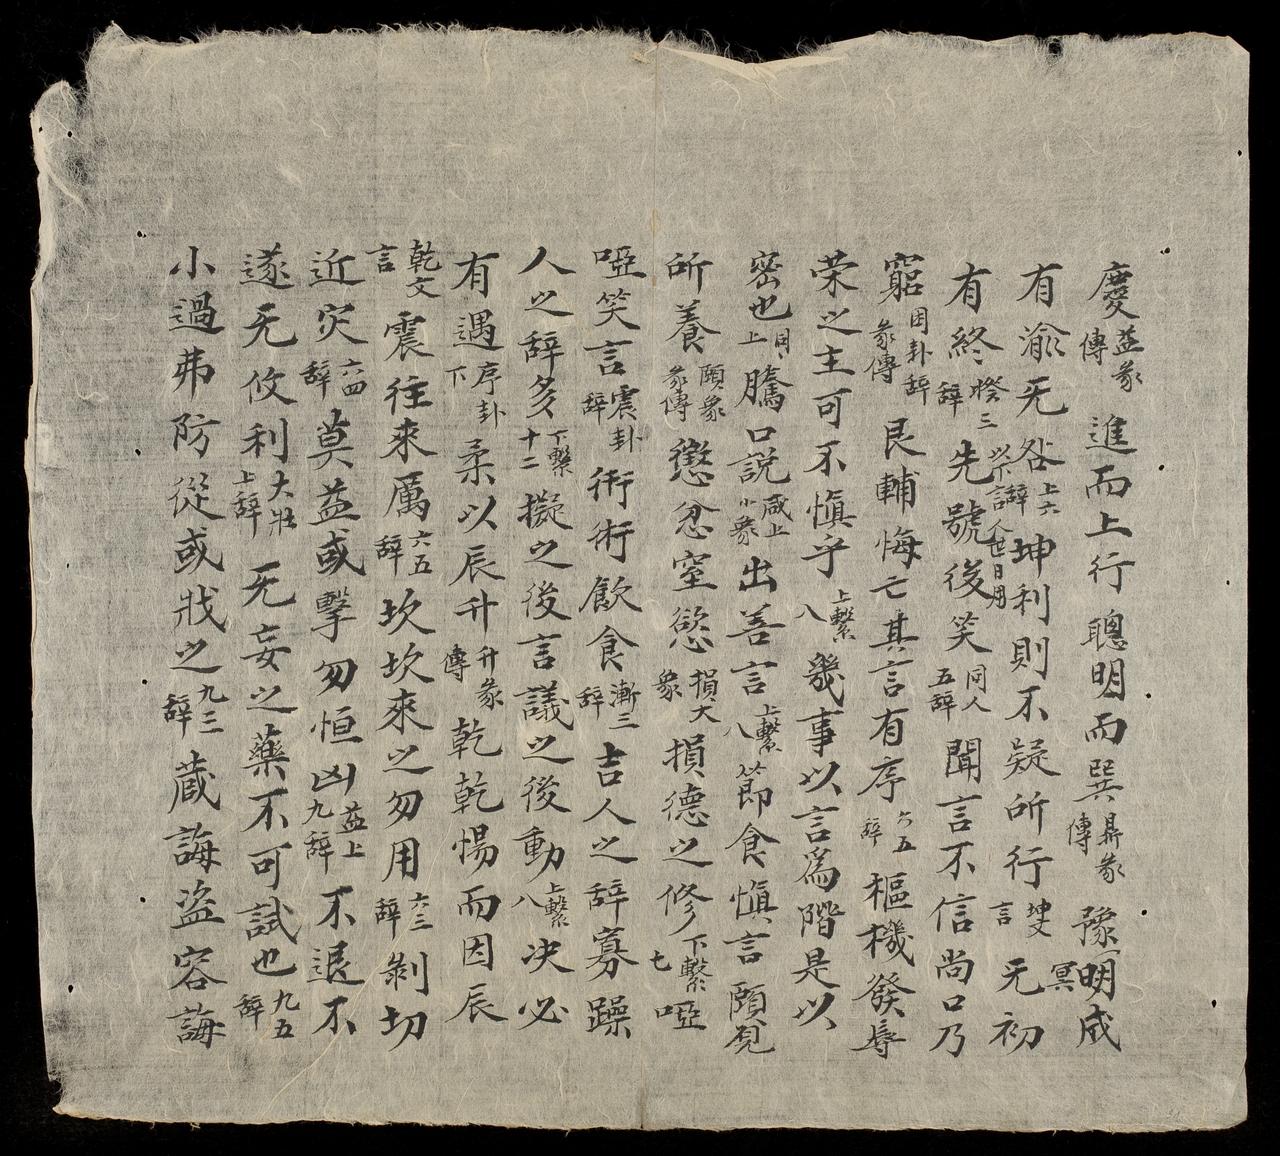 慶益彖傳進而上行聰明而巽鼎彖傳豫冥明成
有渝无咎上六辞坤利則不疑所行坤文言无初
有終睽三辞先號後笑同人五辞聞言不信尚口乃
窮困卦辞彖傳艮輔悔亡其言有序六五辞樞機發辱
荣之主可不慎乎上繫八幾事以言為階是以
密也同上騰口説咸上小象出善言上繫八節食慎言頤覓
所養頤象彖傳懲忿窒慾損大象損德之修下繫七啞
啞笑言震卦辞衎衎飲食漸二辞吉人之辞寡躁
人之辞多下繫十二擬之後言議之後動上繫八决必
有遇序卦下柔以辰升升彖傳乾乾惕而因辰
乾文言震往來厲六五辞坎坎來之勿用六三辞剝切
近灾六四辞莫益或擊勿恒凶益上九辞不退不
遂无攸利大壯上辞无妄之藥不可試也九五辞
小過弗防從或戕之九三辞蔵誨盗容誨